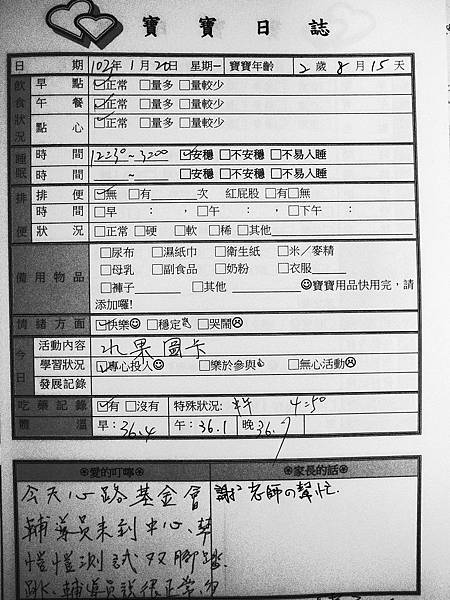 寶寶日誌
日期 102年1月20日 星期一 寶寶年齡 2歲8月15天
飲食狀況
早點 ☑正常 □量多 □量較少
午餐 ☑正常 □量多 □量較少
點心 ☑正常 □量多 □量較少
睡眠
時間 12:30~3:00 ☑安穩 □不安穩 □不易入睡
時間 ~ □安穩 □不安穩 □不易入睡
排便
排便 ☑無 □有 次 紅屁股 □有□無
時間 □早 : ,□午 : ,□下午 :
狀況 □正常 □硬 □軟 □稀 □其他
備用物品
□尿布 □濕紙巾 □衛生紙 □米／麥精
□母乳 □副食品 □奶粉 □衣服
□褲子 □其他 ☺寶寶用品快用完,請
添加囉!
情緒方面 ☑快樂☺ □穩定 □哭鬧☹
今日
活動內容 水果圖卡
學習狀況 ☑專心投入☺ □樂於參與 □無心活動☹
發展記錄
吃藥記錄 ☑有 □沒有 特殊狀況: 4:50
體溫 早:36.4 午:36.1 晚36.7
愛的叮嚀 家長的話
今天心路基金會
輔導員來到中心、幫
愷愷測試双腳
跳、輔導員說很正常、
謝謝老師的幫忙.